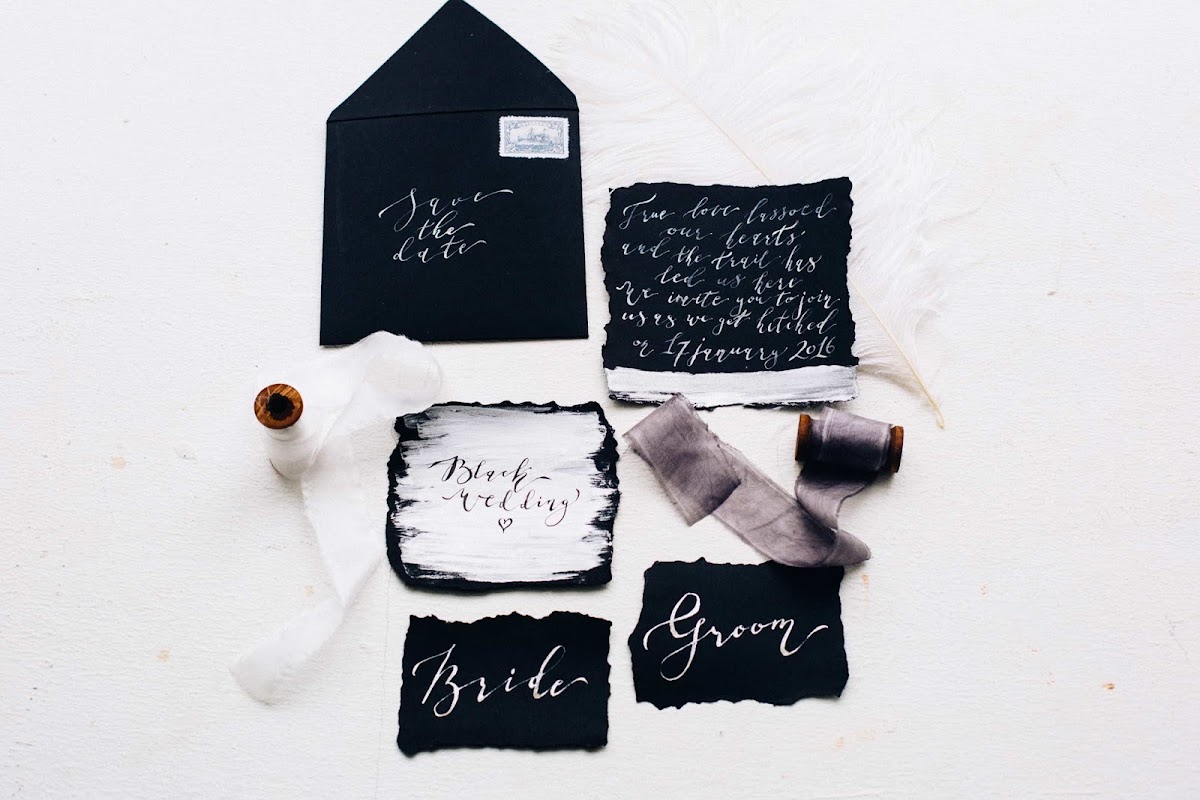 Save
the
date
True love lassoed
our hearts
and the trail has
led us here
We invite you to join
us as we get hitched
on 17 january 2016
Black
wedding
Bride
Groom